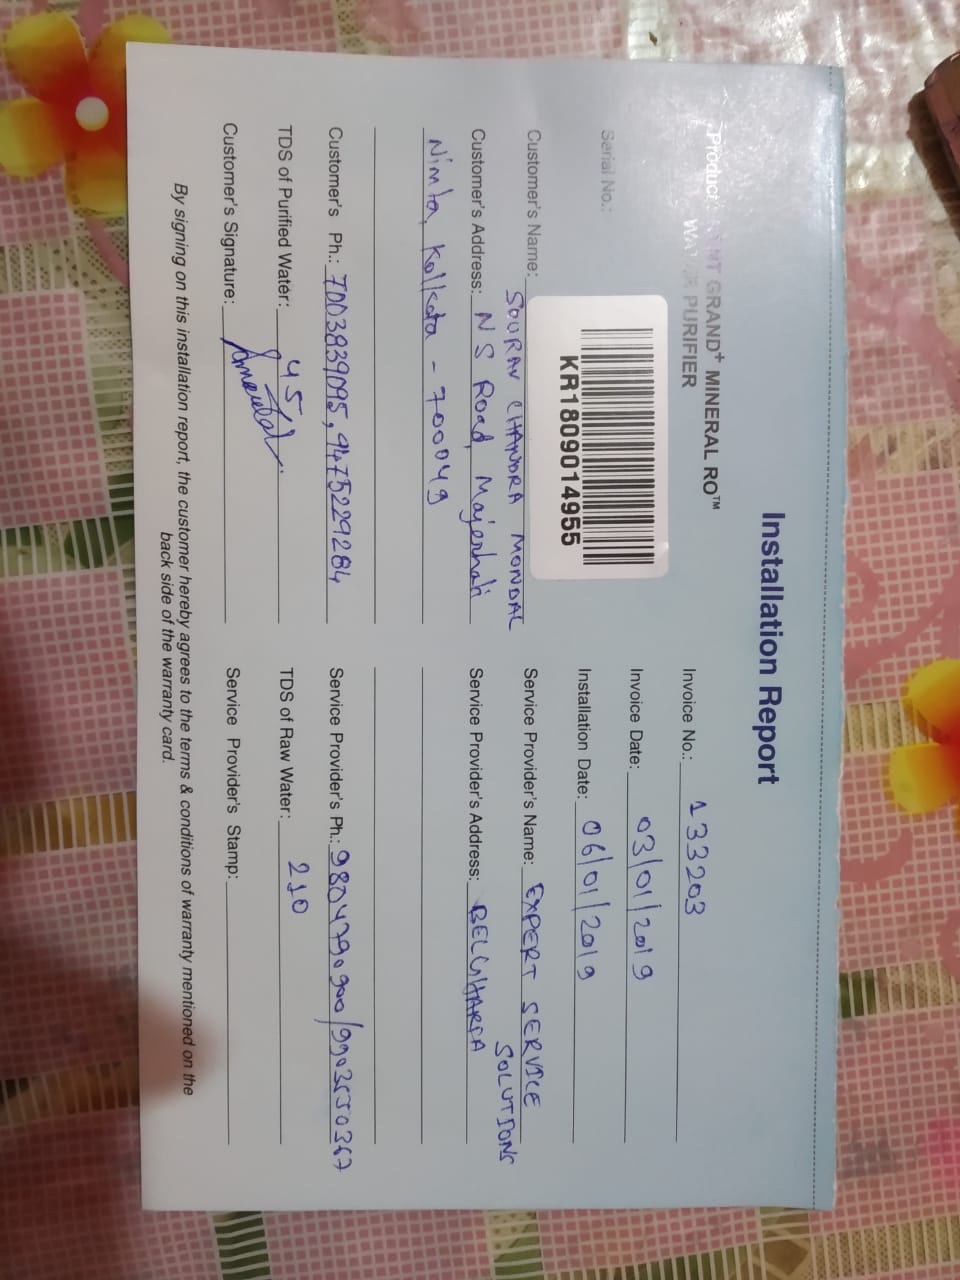 Installation Report
Product: KENT GRAND+ MINERAL RO™
WATER PURIFIER
Serial No.:
KR1809014955
Customer's Name: SOURAV CHANDRA MONDAL
Customer's Address: NS Road, Majerhati
Nimta, Kolkata - 700049
Customer's Ph.: 7003839095, 9475229284
TDS of Purified Water: 45
Customer's Signature:
Invoice No.: 133203
Invoice Date: 03/01/2019
Installation Date: 06/01/2019
Service Provider's Name: EXPERT SERVICE
SOLUTIONS
Service Provider's Address: BELGHARIA
Service Provider's Ph.: 9804790900/
TDS of Raw Water: 210
Service Provider's Stamp:
By signing on this installation report, the customer hereby agrees to the terms & conditions of warranty mentioned on the
back side of the warranty card.